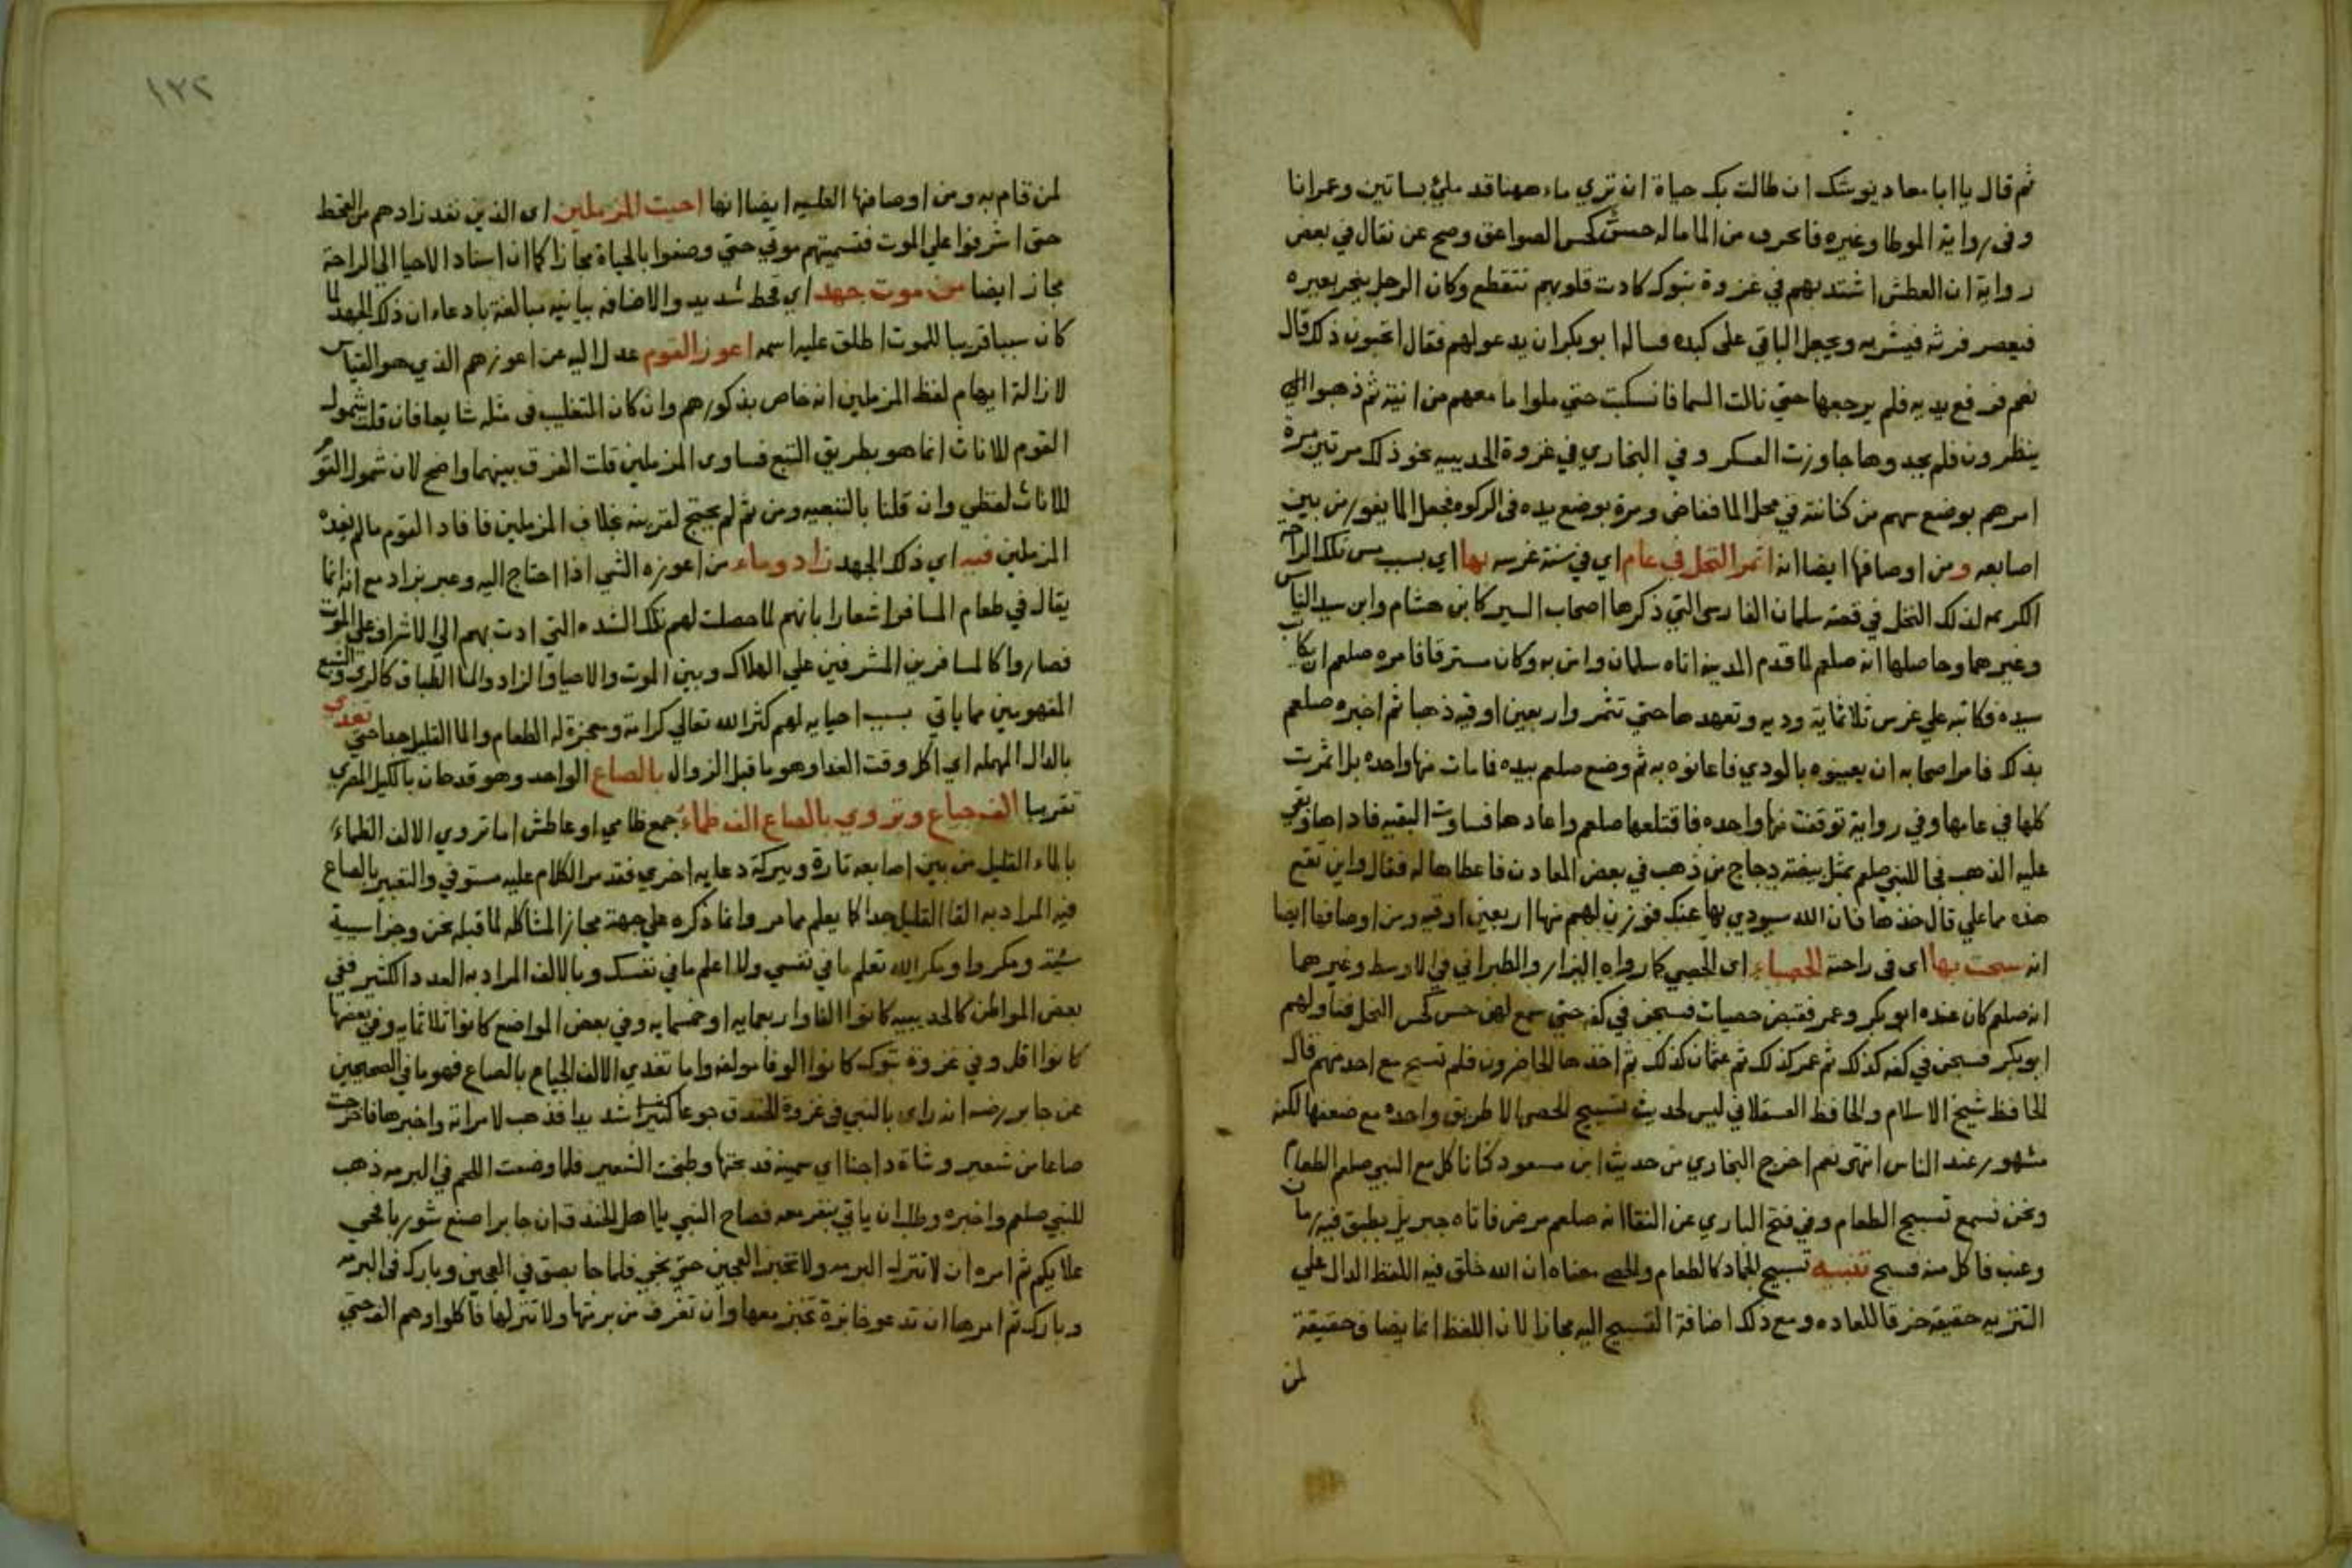 ثم قال يا ابا معاد يوشك ان طالت بك حياة ان تري ماء ههنا قد ملئ بساتين وعمرانا
وفي رواية الموطا وغيره فانحرف من الما ماله حسّ كحس الصواعق وصح عن نقال في بعض
رواية ان العطش اشتد بهم في غزوة تبوك كادت قلوبهم تتقطع وكان الرجل ينحر بعيره
فيعصر فرثه فيشربه ويجعل الباقي على كبده فساله ابو بكر ان يدعو لهم فقال اتحبون ذلك قال
نعم فرفع يديه فلم يرجعها حتي نالت السما فانسكبت حتي ملوا ما معهم من انية ثم ذهبوا
ينظرون فلم يجدوها جاوزت العسكر وفي البخاري في غزوة الحديبيه نحو ذلك مرتين مرة
امرهم بوضع سهم من كنانته في محل الما ففاض ومرة بوضع يده في الركوه فجعل الما يفور من بين
اصابعه ومن اوصافها ايضا انه اثمر النخل في عام اي في سنة غرسه بها اي بسبب مس تلك الراحه
الكريمه لذلك النخل في قصة سلمان الفارسي التي ذكرها اصحاب السير كابن هشام وابن سيد الناس
وغيرهما وحاصلها انه صلعم لما قدم المدينه اتاه سلمان وامن به وكان مسترقا فامره صلعم ان يكاتب
سيده فكاتبه علي غرس ثلاثماية وديه وتعهدها حتي تثمر واربعين اوقيه ذهبا ثم اخبره صلعم
بذلك فامر اصحابه ان يعينوه بالودي فاعانوه به ثم وضع صلعم بيده فامات منها واحده بل اثمرت
كلها في عامها وفي رواية توقفت منها واحده فاقتلعها صلعم واعادها فساوت البقيه فاداها وبقي
عليه الذهب فجا للنبي صلعم بمثل بيضة دجاج من ذهب في بعض المعادن فاعطاها له فقال واين تقع
هذه مما علي قال خذها فان الله سيودي بها عنك فوزن لهم منها اربعين اوقيه ومن اوصافها ايضا
انه سبحت بها اي في راحته الحصباء اي الحصي كما رواه البزار والطبراني في الاوسط وغيرهما
انه صلعم كان عنده ابو بكر وعمر فقبض حصيات فسبحن في كفه حتي سمع لهن حس كحس النحل فناولهم
ابو بكر فسبحن في كفه كذلك ثم عمر كذلك ثم عثمان كذلك ثم اخذها الحاضرون فلم تسبح مع احد منهم قال
الحافظ شيخ الاسلام والحافظ العسقلاني ليس لحديث تسبيح الحصي الا طريق واحده مع ضعفها لكنه
مشهور عند الناس انتهى نعم اخرج البخاري من حديث ابن مسعود كنا ناكل مع النبي صلعم الطعام
ونحن نسمع تسبيح الطعام وفي فتح الباري عن الشفا انه صلعم مرض فاتاه جبريل بطبق فيه رمان
وعنب فاكل منه فسبح تنبيه تسبيح الجماد كالطعام والحصي معناه ان الله خلق فيه اللفظ الدال علي
التنزيه حقيقة خرقا للعاده ومع ذلك اضافة التسبيح اليه مجازا لان اللفظ انما يضاف حقيقة
لمن
١٢٢
لمن قام به ومن اوصافها العليه ايضا انها احيت المرملين اي الذين نفد زادهم من القحط
حتي اشرفوا علي الموت فتسميتهم موتي حتي وصفوا بالحياة مجازا كما ان اسناد الاحيا الي الراحة
مجاز ايضا من موت جهد اي قحط شديد والاضافه بيانيه مبالغة بادعاء ان ذلك الجهد لما
كان سببا قريبا للموت اطلق عليه اسمه اعوز القوم عدل اليه عن اعوزهم الذي هو القياس
لازالة ايهام لفظ المرملين انه خاص بذكورهم وان كان التغليب في مثله شايعا فان قلت شمول
القوم للاناث انما هو بطريق التبع فساوي المرملين قلت الفرق بينهما واضح لان شمول القوم
للاناث لفظي وان قلنا بالتبعيه ومن ثم لم يحتج لقرينه بخلاف المرملين فافاد القوم ما لم يفده
المرملين فيه اي ذلك الجهد زاد وماء من اعوزه الشي اذا احتاج اليه وعبر بزاد مع انه انما
يقال في طعام المسافر اشعارا بانهم لما حصلت لهم تلك الشده التي ادت بهم الي الاشراف علي الموت
فصاروا كالمسافرين المشرفين علي الهلاك وبين الموت والاحيا والزاد والما الطباق كالري والشبع
المفهومين مما ياتي بسبب احيايه لهم كثر الله تعالي كرامة ومعجزة له الطعام والما القليل جدا حتي تغدي
بالدال المهمله اي اكل وقت الغدا وهو ما قبل الزوال بالصاع الواحد وهو قدحان بالكيل المصري
تقريبا الف جياع وتروي بالصاع الف ظماء جمع ظامي او عاطش اما تروي الالف الظماء
بالماء القليل من بين اصابعه تارة وببركة دعايه اخري فقد مر الكلام عليه مستوفي والتعبير بالصاع
فيه المراد به القا القليل جدا كما يعلم مما مر وانما ذكره علي جهة مجاز المشاكله لما قبله نحن وجزا سيية
سيية ومكروا ومكر الله تعلم ما في نفسي ولا اعلم ما في نفسك وبالالف المراد به العدد الكثير ففي
بعض المواطن كالحديبيه كانوا الفا واربعمايه او خمسمايه وفي بعض المواضع كانوا ثلاثمايه وفي بعضها
كانوا اقل وفي غزوة تبوك كانوا الوفا مولفه واما تغدي الالف الجياع بالصاع فهو ما في الصحيحين
عن جابر رضه انه راى بالنبي في غزوة الخندق جوعا كثيرا شديدا فذهب لامراته واخبرها فاخرجت
صاعا من شعير وشاة داجنا اي سمينه فذبحتها وطحنت الشعير فلما وضعت اللحم في البرمه ذهب
للنبي صلعم واخبره وطلب ان ياتي بنفر معه فصاح النبي يا اهل الخندق ان جابرا صنع شوربا فحي
علا بكم ثم امره ان لا تنزل البرمه ولا تخبز العجين حتي يجي فلما جا بصق في العجين وبارك في البرمه
وبارك ثم امرها ان تدعو خابزة تخبز معها وان تغرف من برمتها ولا تنزلها فاكلوا وهم الف حتي